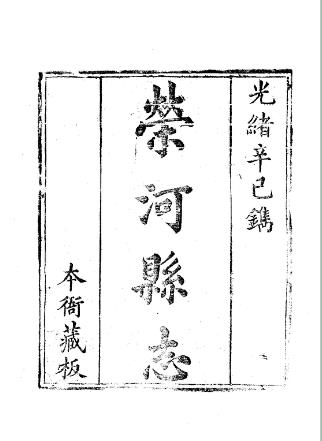 光緒辛巳鐫
榮河縣志
本衙藏板